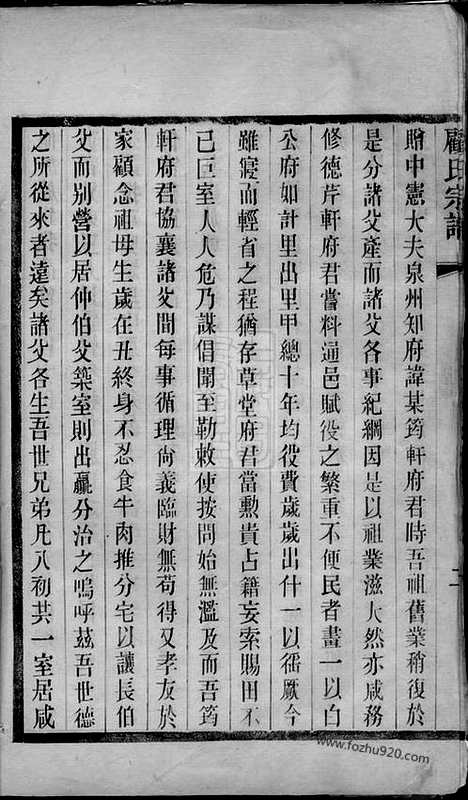 顧氏宗譜
贈中憲大夫泉州知府諱某筠軒府君時吾祖舊業稍復於
是分諸父產而諸父各事紀綱因是以祖業滋大然亦咸務
修德芹軒府君嘗料通邑賦役之繁重不便民者畫一以白
公府如計里出里甲總十年均役費歲歲出什一以徭厥今
雖寢而輕省之程猶存草堂府君當勲貴占籍妄索賜田不
己巨室人人危乃謀倡聞至勒敕使按問始無濫及而吾筠
軒府君協襄諸父間每事循理尚義臨財無苟得又孝友於
家顧念祖母生歲在丑終身不忍食牛肉推分宅以讓長伯
父而别營以居仲伯父築室則出羸分治之嗚呼茲吾世德
之所從來者遠矣諸父各生吾世兄弟凡八初共一室居咸
二
www.fozhu920.com